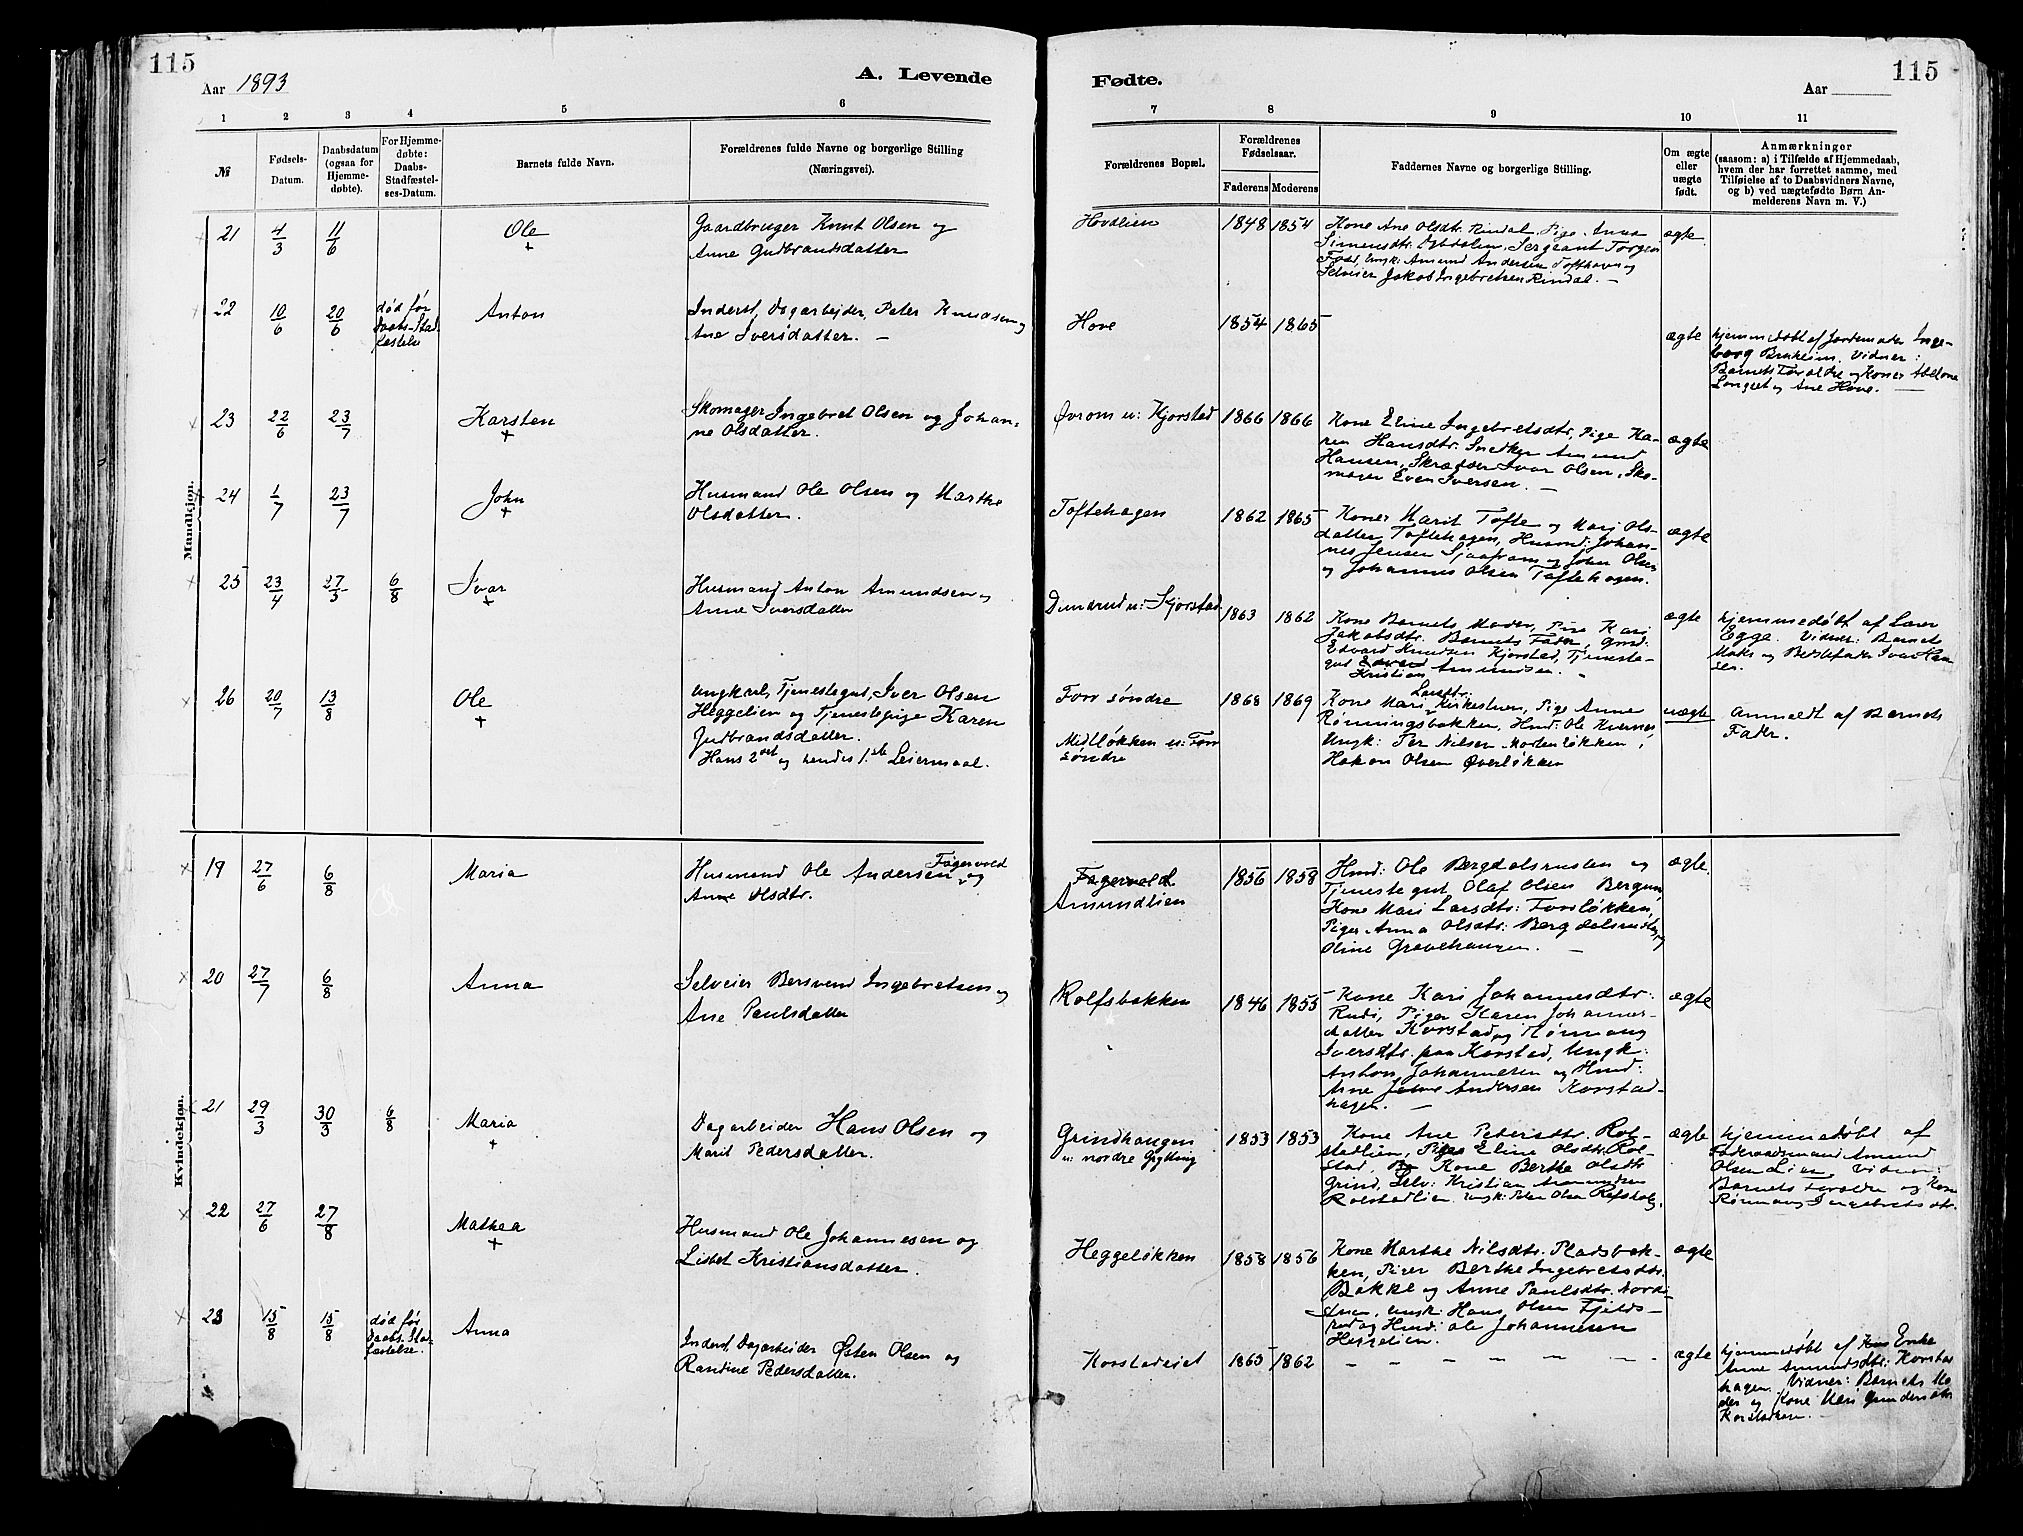 115
Aar 1893
A. Levende
Fødte.
115
Aar
1 2 3 4 5 6 7 8 9 10 11
№
Fødsels-
Datum.
Daabsdatum
(ogsaa for
Hjemme-
døbte).
For Hjemme-
døbte:
Daabs-
Stadfæstel-
ses-Datum.
Barnets fulde Navn.
Forældrenes fulde Navne og borgerlige Stilling
(Næringsvei).
Forældrenes Bopæl.
Forældrenes
Fødselsaar.
Faderens Moderens
Faddernes Navne og borgerlige Stilling.
Om ægte
eller
uægte
født.
Anmærkninger
(saasom: a) i Tilfælde af Hjemmedaab,
hvem der har forrettet samme, med
Tilføielse af to Daabsvidners Navne,
og b) ved uægtefødte Børn An-
melderens Navn m. V.)
Mandkjøn.
21 4/3 11/6 Ole
Gaardbruger Knut Olsen og
Anne Gudbrandsdatter
Hovdlien 1848 1854
Kone Ane Olsdtr. Rindal, Pige Anna
Simensdtr. Sergeant Torger
Amund Andersen Tofthavn og
Selveier Jakob Ingebretsen Rindal. —
ægte
22 10/6 20/6
død før
Daabs-Stad.
fæstelse
Anton
Inderst, Dagarbejder, Peter Knudsen og
Ane Iversdatter. —
Hove 1854 1865
ægte
hjemmedøbt af Jordemoder Inge-
borg Bruheim. Vidner:
Barnets Forældre og Koner
og Ane Hove. —
23 22/6 23/7 Karsten
Skomager Ingebret Olsen og Johan-
ne Olsdatter.
Øvrom u: Kjorstad 1866 1866
Kone Eline Ingebretsdtr, Pige Ka-
ren Hansdtr. Snedker Amund
Hansen, Skrædder Ivar Olsen, Sko-
mager Even Iversen. —
ægte
24 1/7 23/7 John
Husmand Ole Olsen og Marthe
Olsdatter.
Toftehagen 1862 1865
Koner Marit Tofte og Mari Ols-
datter Toftehagen, Husmd: Johan-
nes Jensen og John Olsen
og Johannes Olsen Toftehagen.
ægte
25 23/4 27/5 6/8 Ivar
Husmand Anton Amundsen og
Anne Iversdatter
u: Kjorstad 1863 1862
Kone Barnets Moder, Pige Kari
Jakobsdtr. Barnets Fader, Grd:
Edvard Knudsen Kjorstad, Tjeneste-
gut Edvard Amundsen.
Kristian
ægte
hjemmedøbt af Lærer
Egge. Vidner: Barnets
Moder og Bedstefader Ivar Han-
sen.
26 20/7 13/8 Ole
Ungkarl, Tjenestegut, Iver Olsen
Heggelien og Tjenestepige Karen
Gudbrandsdatter.
Hans 2det og hendes 1.ste Leiermaal.
Forr søndre
Midtløkken u: Forr
søndre
1868 1869
Larsdtr:
Kone Mari Kirkestuen, Pige Anne
Rønningsbakken, Hmd: Ole Kvernes,
Ungk: Per Nilsen Mortenløkken,
Hakon Olsen Øverløkken
uægte
Anmeldt af Barnets
Fader.
Kvindekjøn.
19 27/6 6/8 Maria
Fagervold
Husmand Ole Andersen og
Anne Olsdtr.
Fagervold
Amundlien
1856 1858
Hmd: Ole Bergdalsrusten og
Tjenestegut Olaf Olsen Bergum,
Kone Mari Larsdtr: Forrløkken,
Piger Anna Olsdtr: Bergdalsrusten og
Oline Gravehaugen. —
ægte.
20 27/7 6/8 Anna
Selveier Bersvend Ingebretsen og
Ane Paulsdatter
Rolfsbakken 1846 1855
Kone Kari Johannesdtr:
Rudi, Piger Karen Johannes-
datter Korstad og Rønnaug
Iversdtr. paa Korstad, Ungk:
Anton Johannesen og Hmd:
Arne Andersen Korstad-
hagen. —
ægte
21 29/3 30/3 6/8 Maria
Dagarbeider Hans Olsen og
Marit Pedersdatter.
Grindhaugen
u: nordre Grytting
1853 1853
Kone Ane Petersdtr. Rol-
stadlien, Pige Eline Olsdtr. Rol-
stad, Kone Berthe Olsdtr
Grind, Selv: Kristian Amundsen
Rolstadlien. Ungk: Peter Olsen
ægte
hjemmedøbt af
Amund
Olsen Lien. Vidner:
Barnets Forældre og Kone
Rønnaug Ingebretsdtr.
22 27/6 27/8 Mathea
Husmand Ole Johannesen og
Lisbet Kristiansdatter.
Heggeløkken 1858 1856
Kone Marthe Nilsdtr. Pladsbak-
ken, Piger Berthe Ingebretsdtr.
Bakke og Anne Paulsdtr.
Ungk: Hans Olsen
og Hmd: Ole Johannesen
Heggelien.
ægte
23 15/8 15/8
død før
Daabs-Stad
fæstelse.
Anna
Inderst, Dagarbeider Østen Olsen og
Randine Pedersdatter.
Korstadeiet 1865 1862
— — — — — — —
ægte
hjemmedøbt af Enke
Anne Amundsdtr: Korstad-
hagen. Vidner: Barnets Mo-
der og Kone Mari